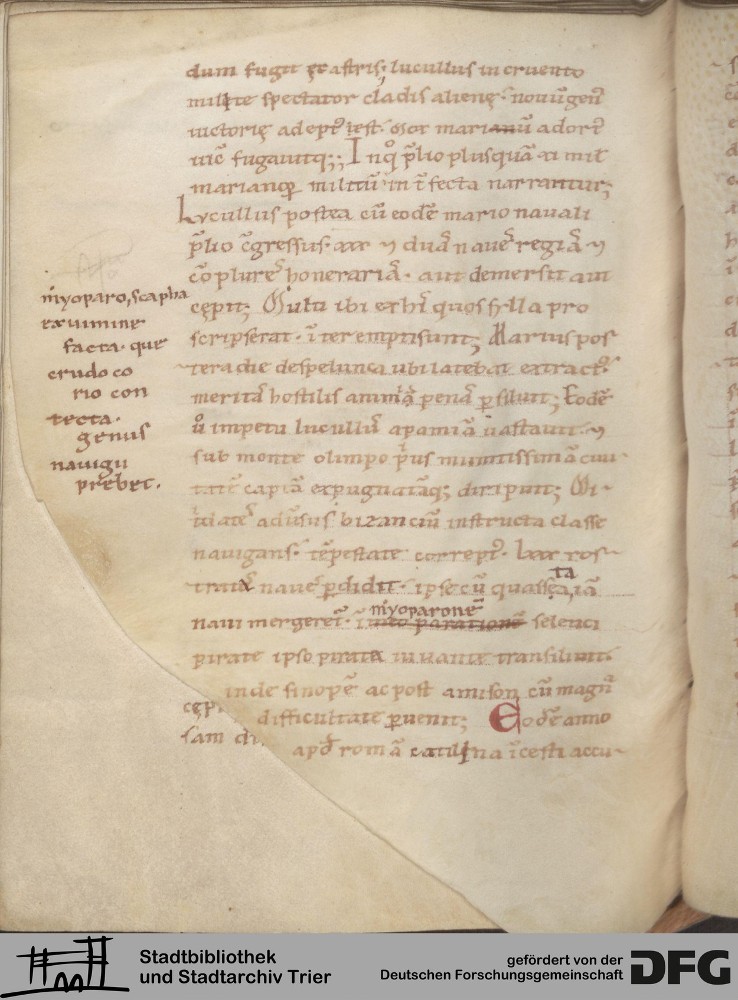 dum fugit ex astris; lucullus in cruento
milite spectator cladis alienę· nouū gen᷒
uictorię adept᷒ iest· osor marianū adort᷒
uic̄ fugauitq;; Inq̊ p̄lio plusquā xi mil̄
marianoꝝ militū int̄fecta narrantur;
Lucullus postea cū eodē mario nauali
p̄lio c̄gressus· xxx ⁊ duas naues regias ⁊
cōplures honerarias· aut demersit aut
cępit; Multi ibi ex his quos sylla pro
scripserat· īterempti sunt; Marius pos
tera die de spelunca ubi latebat extract᷒·
meritas hostilis animi penas p̄soluit; Eodē
ů impetu lucullus apamiā uastauit· ⁊
sub monte olimpo p̄us munitissimā ciui
tatē captā expugnatāq; diripuit; Mi
tridates aduersus bizanciū instructa classe
nauigans· tēpestate corrept᷒· lxxx ros
tratas naues p̄didit· ipse cū quassata iā
naui mergeret᷒· ī myoparonē seleuci
pirate ipso pirata iuuante transiliuit·
inde sinopē ac post amison cū magn̄
difficultate puenit; Eodē anno
apd̄ romā catilina īcesti accu
myoparo, scapha
ex uimine
facta· que
crudo co
rio con
tecta·
genus
nauigii
prębet·
cępi
sam di
Stadtbibliothek
und Stadtarchiv Trier
gefördert von der
Deutschen Forschungsgemeinschaft
DFG